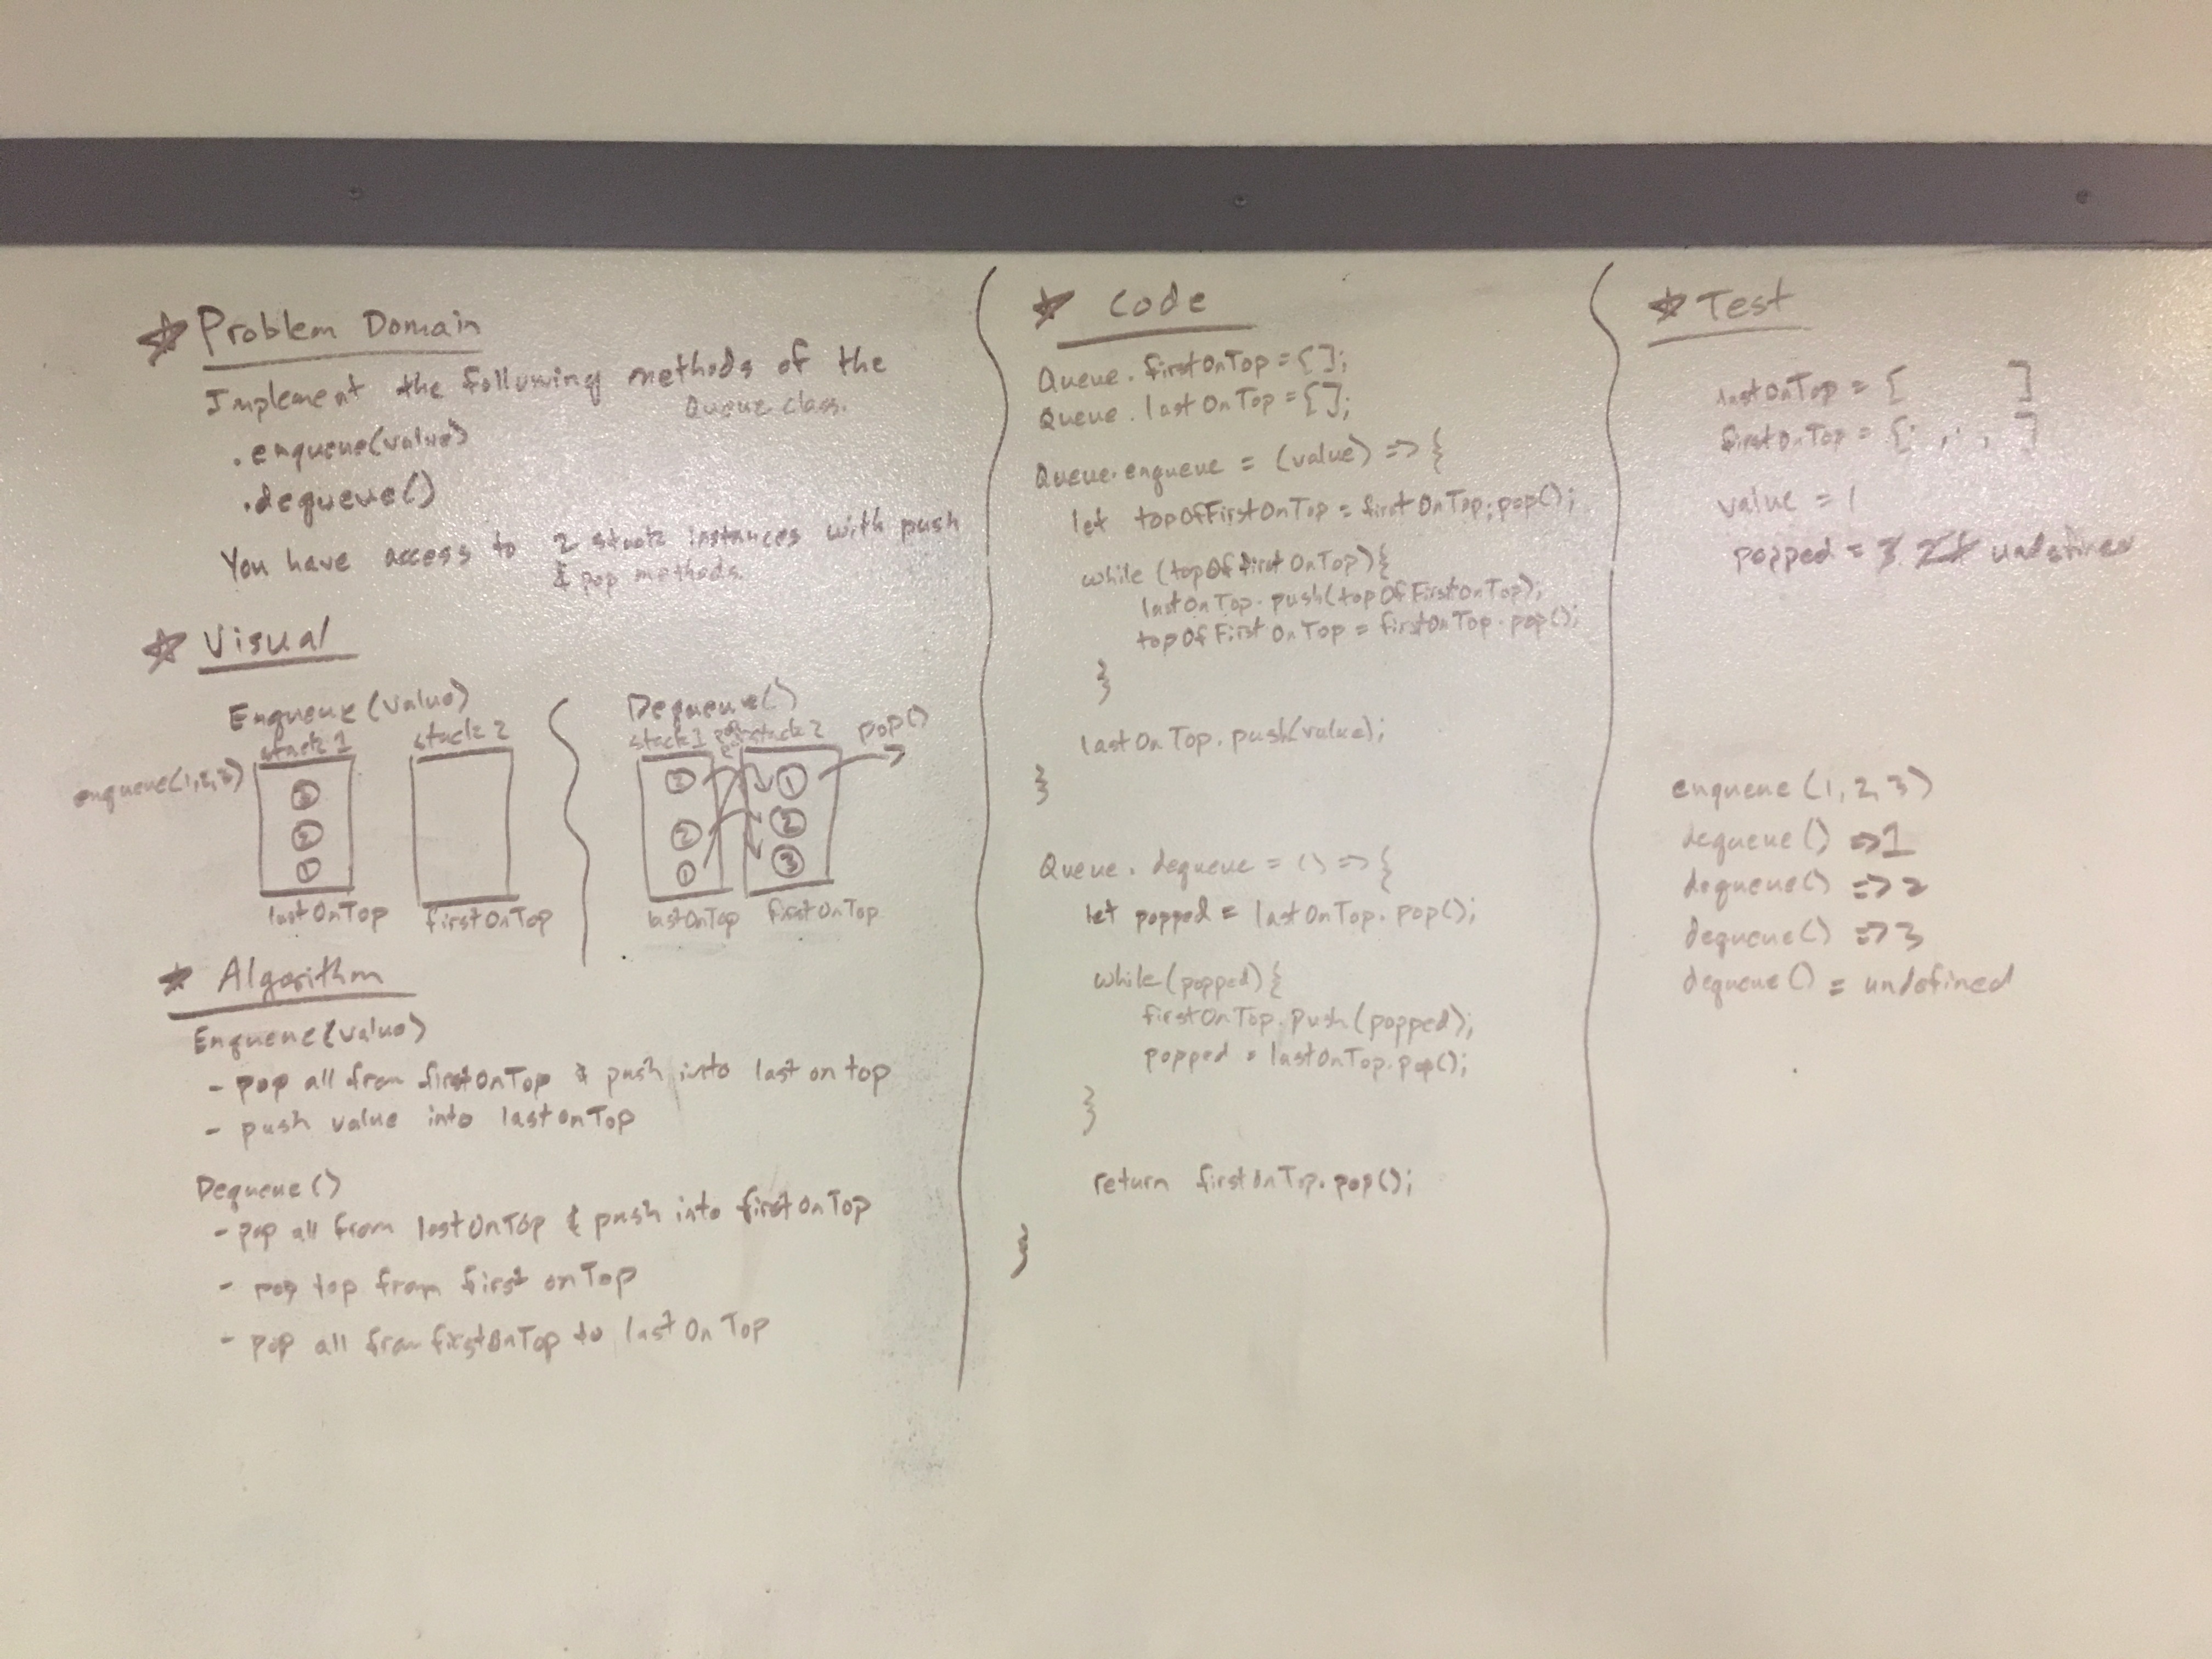 Problem Domain
Implement the following methods of the
Queue class.
.enqueue(value)
.dequeue()
You have access to 2 stack instances with push
& pop methods.
Visual
Enqueue(value)
stack 1 stack 2
enqueue(1,2,3)
3
2
1
lastOnTop firstOnTop
Dequeue()
stack 1 stack 2 pop()
3 1
2 2
1 3
lastOnTop firstOnTop
Algorithm
Enqueue(value)
- pop all from firstOnTop & push into last on top
- push value into lastOnTop
Dequeue()
- pop all from lastOnTop & push into firstOnTop
- pop top from first onTop
- pop all from firstOnTop to lastOnTop
Code
Queue.firstOnTop = [];
Queue.lastOnTop = [];
Queue.enqueue = (value) => {
let topOfFirstOnTop = firstOnTop.pop();
while (topOfFirstOnTop){
lastOnTop.push(topOfFirstOnTop);
topOfFirstOnTop = firstOnTop.pop();
}
lastOnTop.push(value);
}
Queue.dequeue = () => {
let popped = lastOnTop.pop();
while(popped){
firstOnTop.push(popped);
popped = lastOnTop.pop();
}
return firstOnTop.pop();
}
Test
lastOnTop = [ ]
firstOnTop = [ , , ]
value = 1
popped = 3 2 1 undefined
enqueue (1,2,3)
dequeue() => 1
dequeue() => 2
dequeue() => 3
dequeue() = undefined